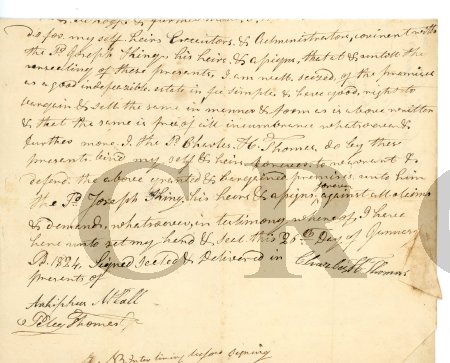 do for my self heirs Executors & Administrators, covenant with
the Sd Joseph Thing, his heirs & asigns, that at & untill the
ensealing of these presents, I am well seized of the premises
as a good indefeasible estate in fee simple, & have good right to
bargain & sell the same in manner & form as is above written
& that the same is free of all incumbrance whatsoever &
further more I, the Sd Charles H. Thomas, do by these
presents bind my self & heirs forever to warrant &
defend the above granted & bargained premises unto him
the Sd Joseph Thing, his heirs & asigns, forever against all claims
& demands whatsoever, in testimony whereof, I have
here unto set my hand & seal this 20th Day of January
AD. 1824. Signed sealed & delivered in
presents of
Charles H Thomas
Peleg Thomas
NB. inter lining before signing
CTG